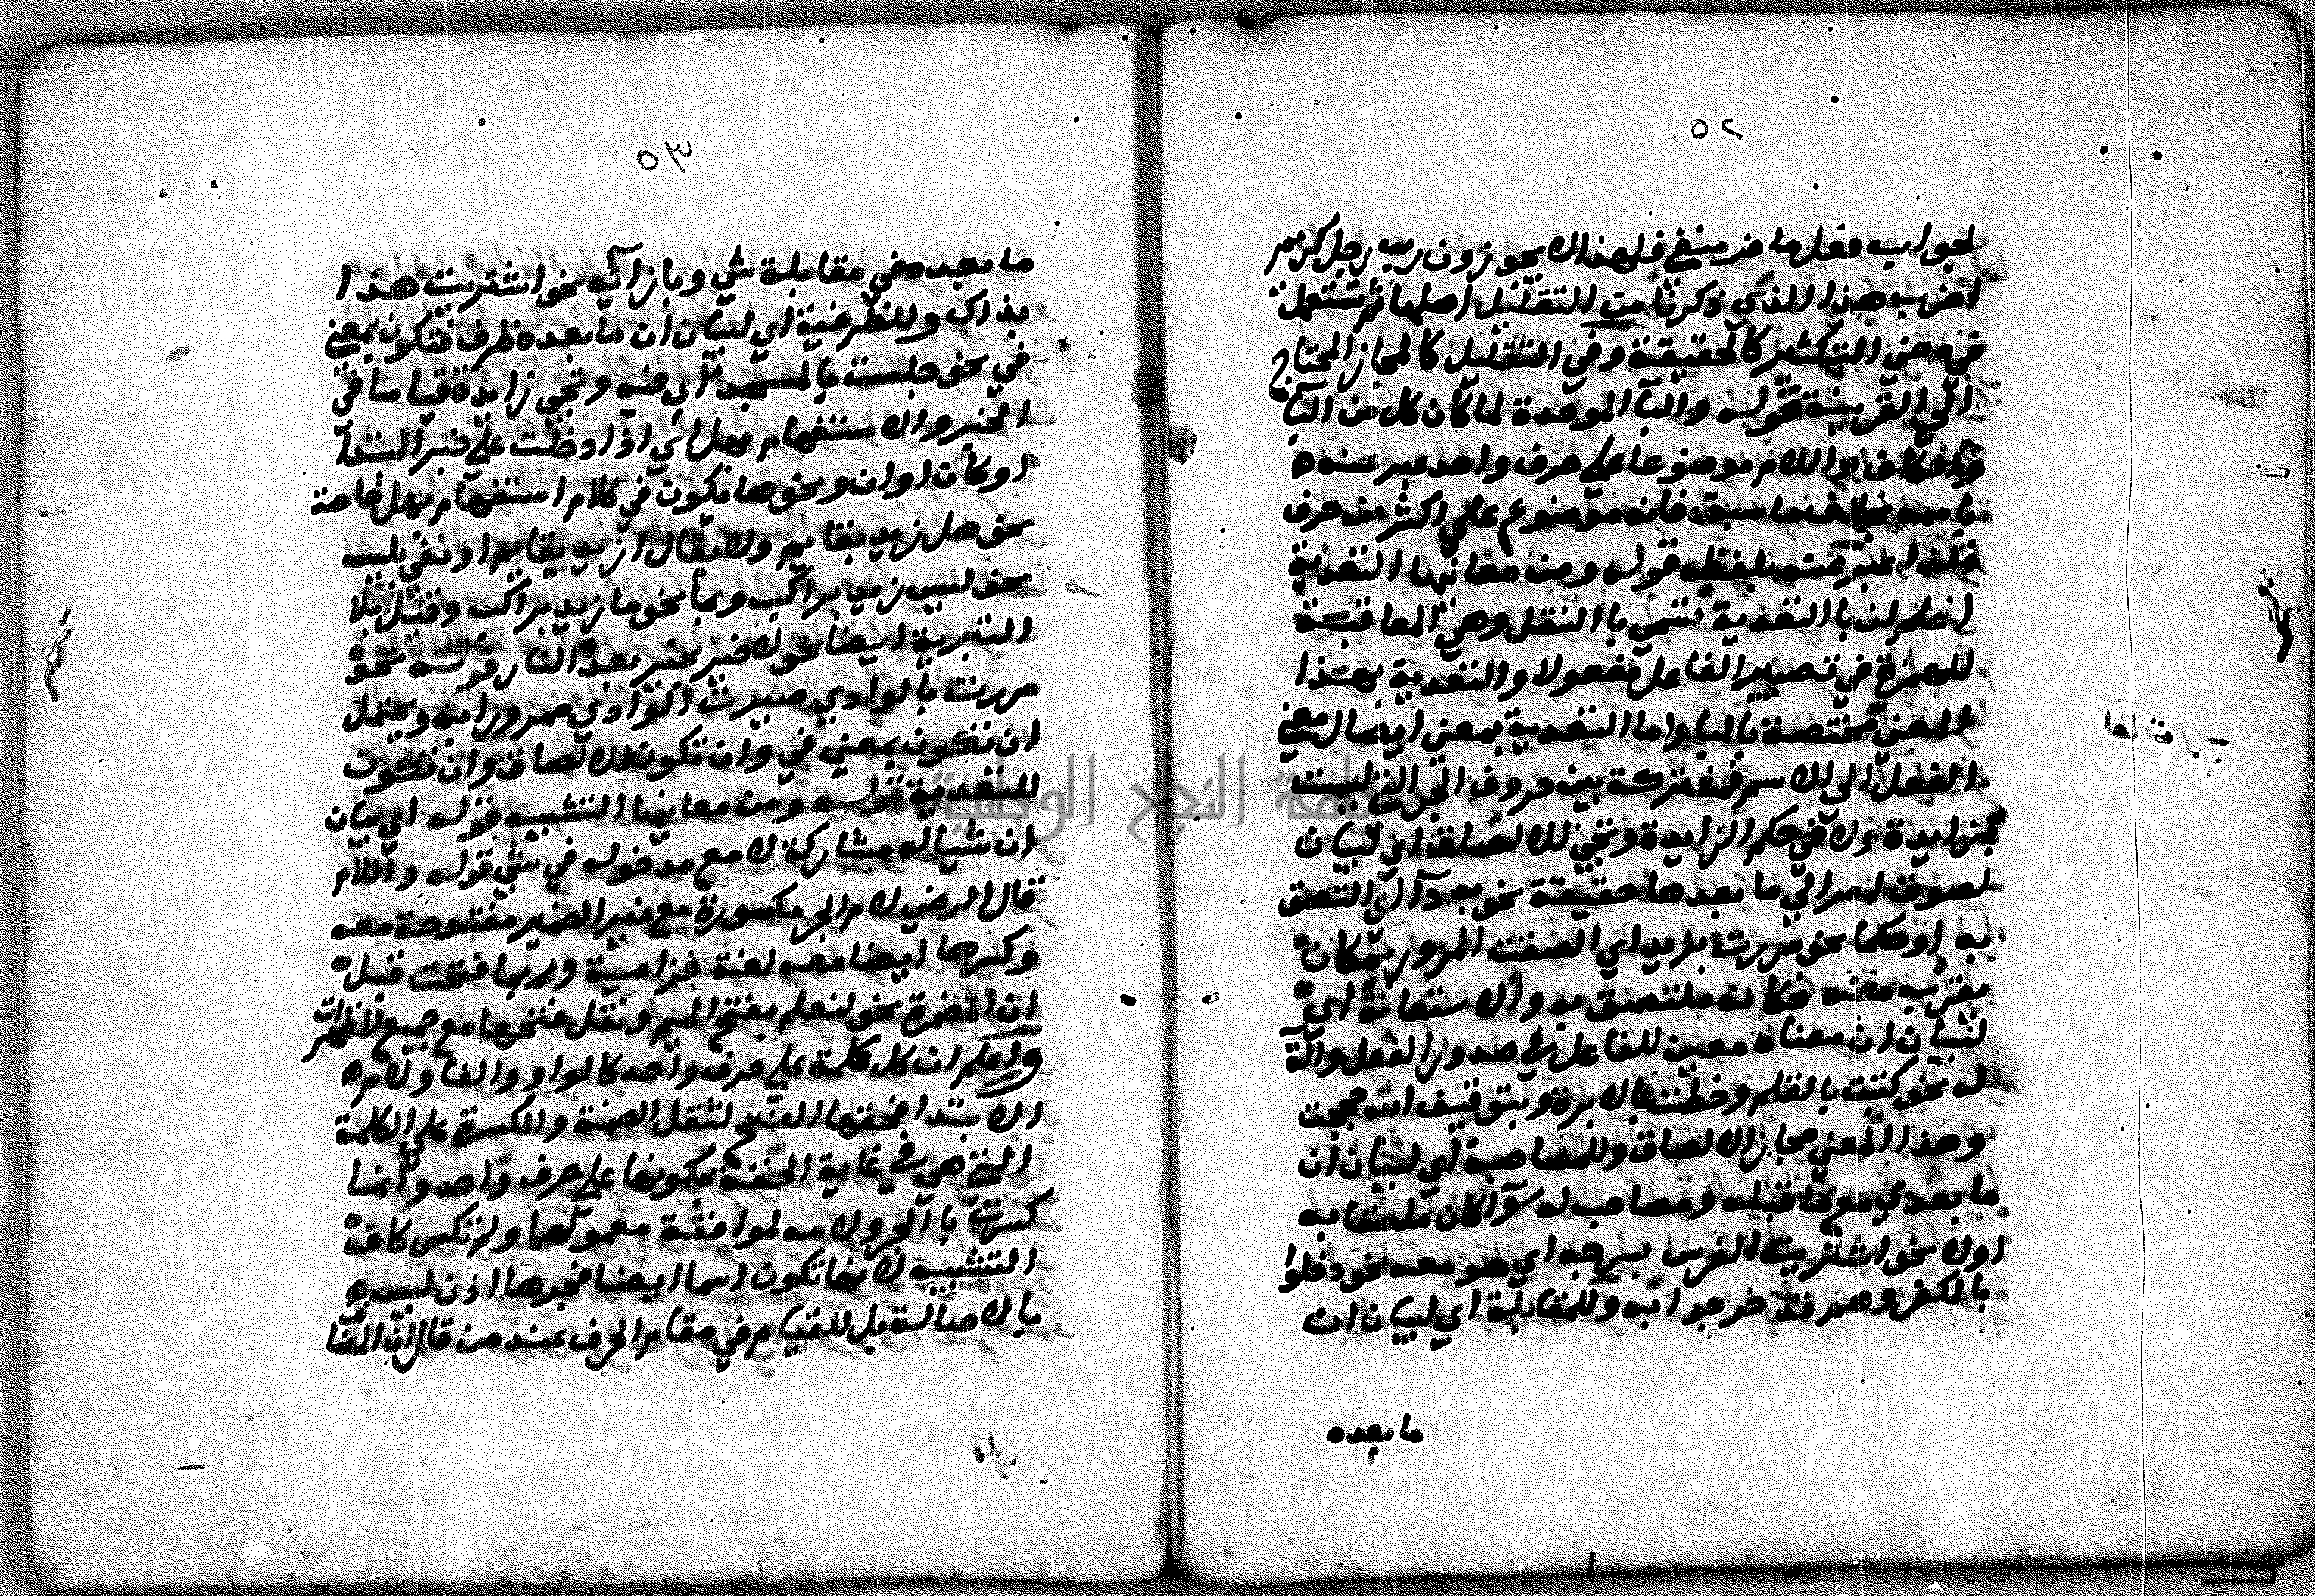 ٥٢
لجواب فعلها منفي فلهذا لا يجوزون رب رجل كريم
اضرب هذا الذي ذكرنا من التقليل اصلها ثم تستعمل
في معنى التكثير كالحقيقة وفي التقليل كالمجاز المحتاج
الى القرينة قوله والبا الموحدة لما كان كل من البا
والكاف واللام موضوعا على حرف واحد عبر عنه
باسمه بخلاف ما سبق فانه موضوع على اكثر من حرف
فلذا عبر عنه بلفظه قوله ومن معانيها التعدية
اعلم ان با التعدية تسمى با النقل وهي المعاقبة
للهمزة في تصيير الفاعل مفعولا والتعدية بهذا
المعنى مختصة بالبا واما التعدية بمعنى ايصال معنى
الفعل الى الاسم فمشتركة بين حروف الجر التي ليست
بزايدة ولا في حكم الزايدة وتجي للالصاق اي لبيان
لصوق امر الى ما بعدها حقيقة نحو به دآ اي التصق
به او حكما نحو مررت بزيد اي الصقت المرور بمكان
يقرب منه فكانه ملتصق به والاستعانة اي
لبيان ان معناه معين للفاعل في صدور الفعل وآلة
له نحو كتبت بالقلم وخطت بالابرة وبتوفيق الله حججت
وهذا المعنى مجاز الالصاق وللمصاحبة اي لبيان ان
ما بعدي مع ما قبله ومصاحب له سوآ كان ملتصقا به
اولا نحو اشتريت الفرس بسرجه اي هو معه نحو دخلوا
بالكفر وهم قد خرجوا به وللمقابلة اي لبيان ان
ما بعده
٥٣
ما بعده في مقابلة شي وبازائه نحو اشتريت هذا
بذاك وللظرفية اي لبيان ان ما بعده ظرف فتكون بمعنى
في نحو جلست بالمسجد اي فيه وتجي زايدة قياسا في
الخبر والاستفهام بهل اي اذا دخلت على خبر المبتدأ
او كان او ان ونحوها يكون في كلام استفهام بهل خاصة
نحو هل زيد بقايم ولا يقال ازيد بقايم او نفي بليس
نحو ليس زيد براكب وبما نحو ما زيد براكب وقيل بلا
التبرية ايضا نحو لا خير بخير بعده النار قوله نحو
مررت بالوادي صيرت الوادي ممرورا به ويحتمل
ان تكون بمعنى في وان تكون للالصاق وان تكون
للتعدية قوله ومن معانيها التشبيه قوله اي بيان
ان شيا له مشاركة مع مدخوله في شي قوله واللام
قال الرضي لام الجر مكسورة مع غير الضمير مفتوحة معه
وكسرها ايضا معه لغة خزاعية وربما فتحت قبل
ان المضمرة نحو لتعلم بفتح الميم ونقل فتحها مع جميع المظهرات
واعلم ان كل كلمة على حرف واحد كالواو والفا ولام
الابتدا فحقها الفتح لثقل الضمة والكسرة على الكلمة
التي هي في غاية الخفة بكونها على حرف واحد وانما
كسرت با الجر ولامه لموافقة معمولها ولم تكسر كاف
التشبيه لانها تكون اسما ايضا فجرها اذن ليس
بالاصالة بل للقيام في مقام الحرف عند من قال ان المضا